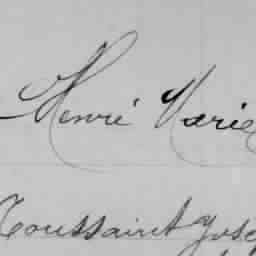 Henri Marie
Toussaint Jose